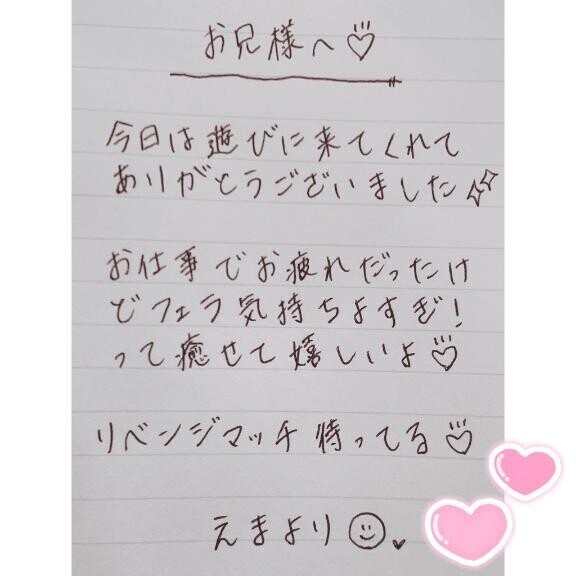 お兄様へ♡
今日は遊びに来てくれて
ありがとうございました✨
お仕事でお疲れだったけ
どフェラ気持ちよすぎ!
って癒せて嬉しいよ♡
リベンジマッチ待ってる♡
えまより☺♥